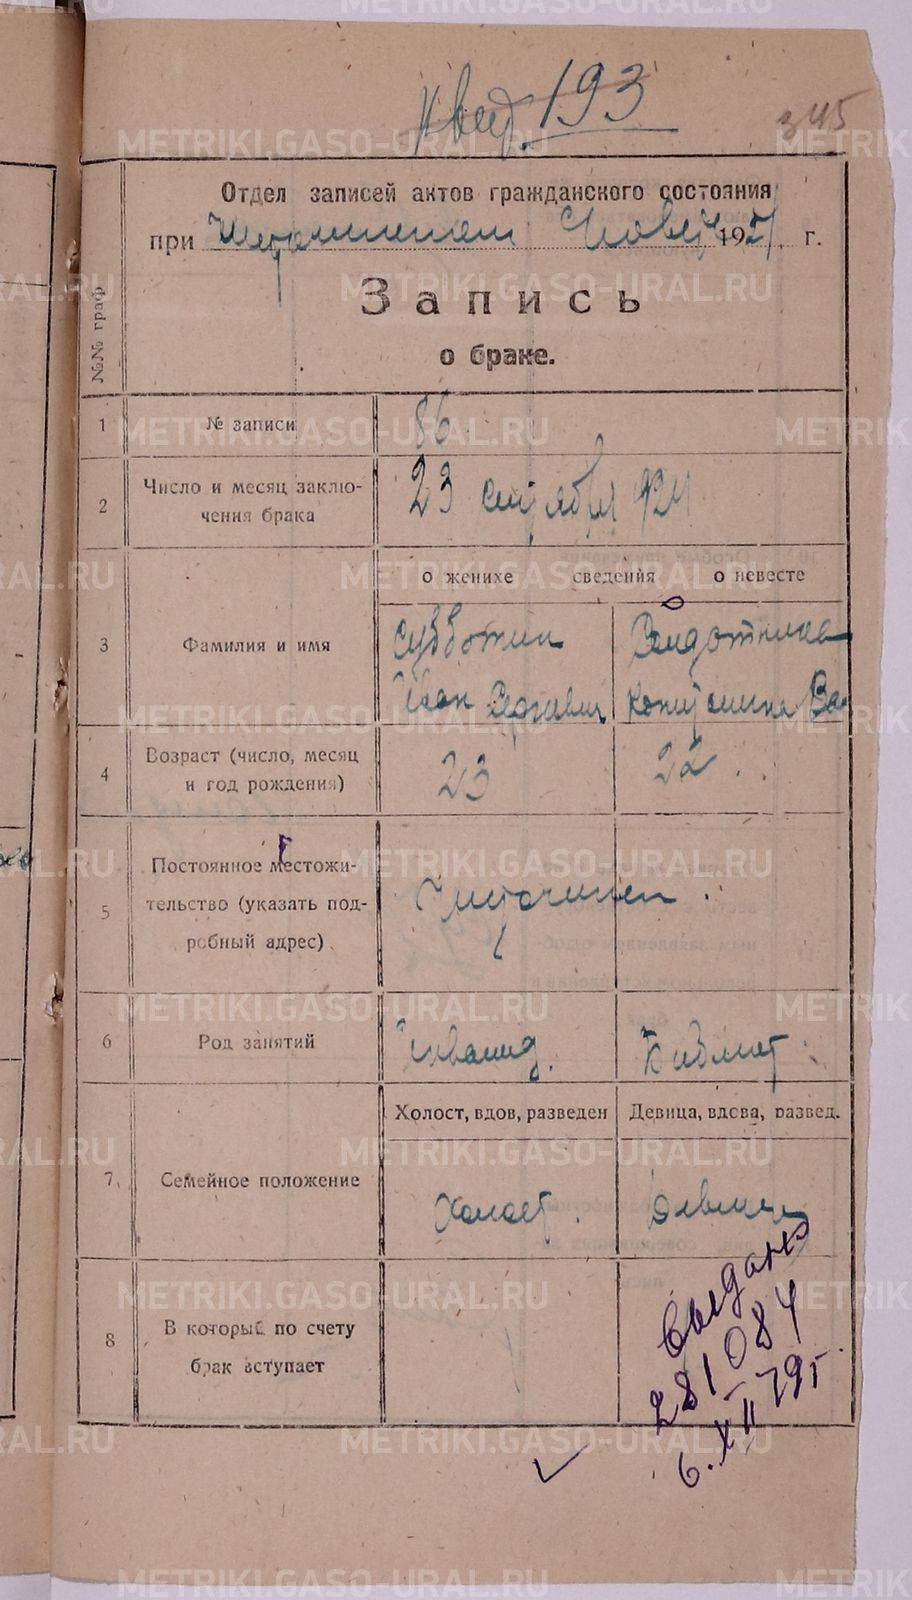 193
345
Отдел записей актов гражданского состояния
при 192 г.
Запись
о браке.
№№ граф
1 № записи 86
2 Число и месяц заклю-
чения брака 23 сентября 924
о женихе сведения о невесте
3 Фамилия и имя Субботин
Иван Сергеевич
4 Возраст (число, месяц
и год рождения) 23 22.
5 Постоянное местожи-
тельство (указать под-
робный адрес)
6 Род занятий Инвалид.
Холост, вдов, разведен Девица, вдова, развед.
7 Семейное положение Холост. Девица
8 В который по счету
брак вступает
Выдано
281084
6.XII-79г.
METRIKI.GASO-URAL.RU